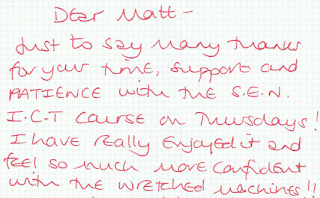 Dear Matt -
Just to say many thanks
for your time, support and
PATIENCE with the S.E.N.
I.C.T course on Thursdays!
I have really enjoyed it and
feel so much more confident
with the wretched machines!!